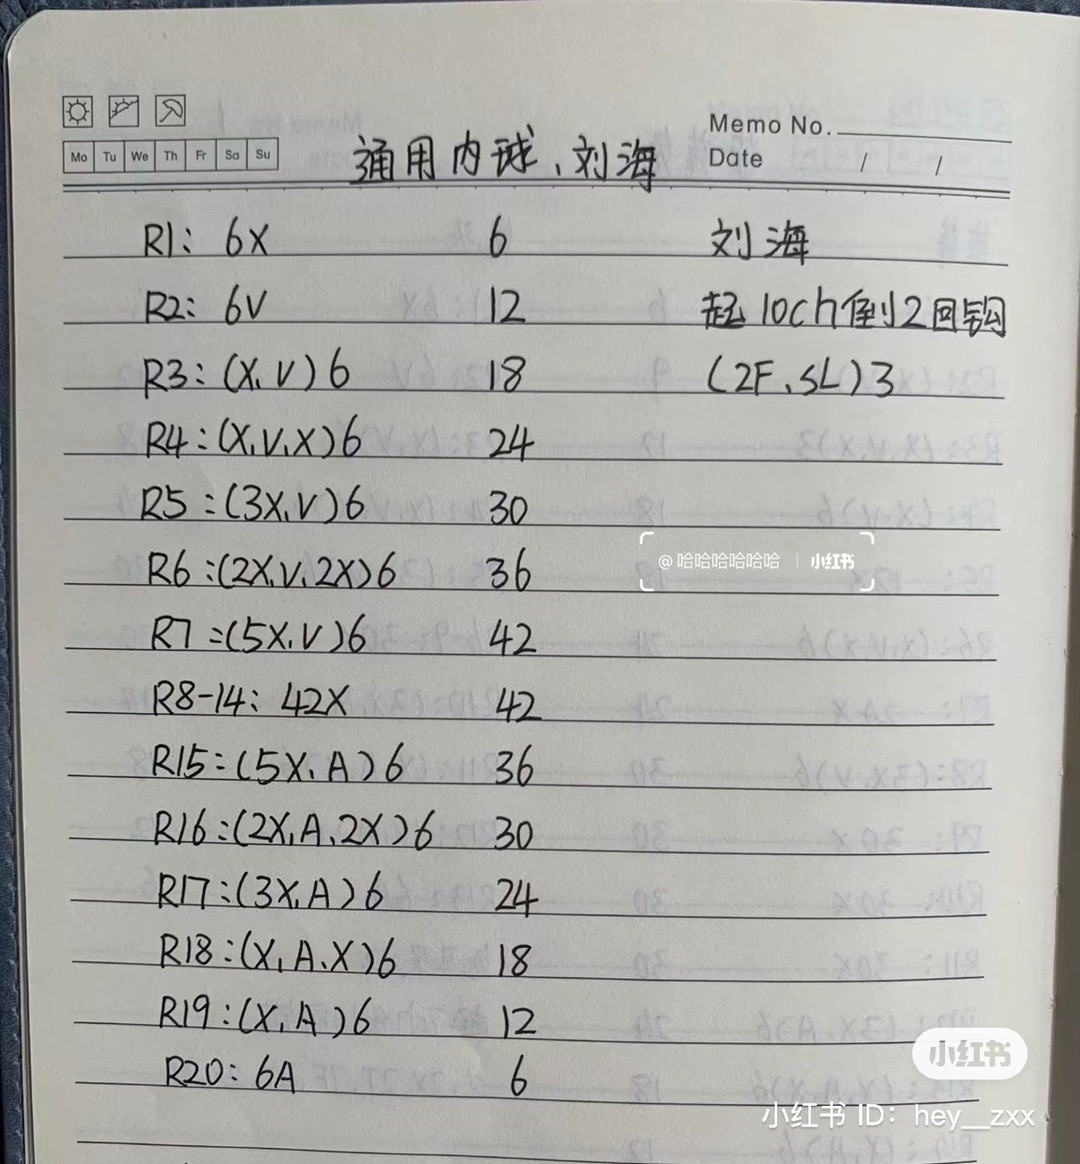 Memo No.
Mo Tu We Th Fr Sa Su
Date / /
通用内球、刘海
R1: 6X 6 刘海
R2: 6V 12 起10ch倒2回钩
R3: (X, V)6 18 (2F、SL)3
R4: (X,V,X)6 24
R5: (3X,V)6 30
@哈哈哈哈哈哈 | 小红书
R6: (2X,V,2X)6 36
R7: (5X,V)6 42
R8-14: 42X 42
R15: (5X, A)6 36
R16: (2X,A,2X)6 30
R17: (3X,A)6 24
R18: (X, A, X)6 18
R19: (X, A)6 12
R20: 6A 6
小红书
小红书 ID: hey__zxx